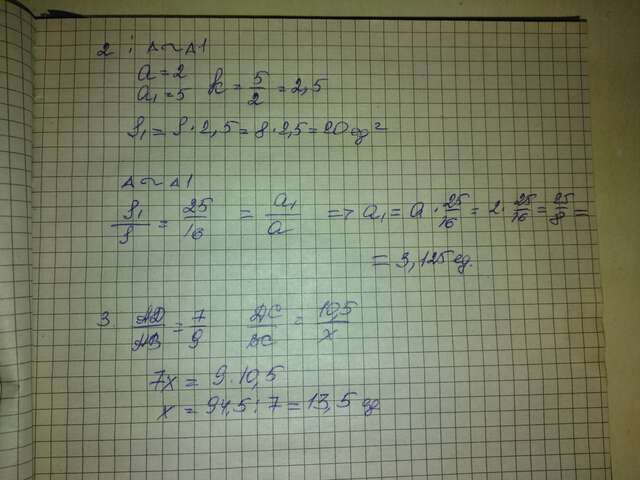 2 : Δ ~ Δ1
a = 2
a₁ = 5 k = 5/2 = 2,5
S₁ = S · 2,5 = 8 · 2,5 = 20 ед²
Δ ~ Δ1
S₁/S = 25/16 = a₁/a => a₁ = a · 25/16 = 2 · 25/16 = 25/8 =
= 3,125 ед.
3 AD/AB = 7/9 DC/BC = 10,5/x
7x = 9 · 10,5
x = 94,5 : 7 = 13,5 ед